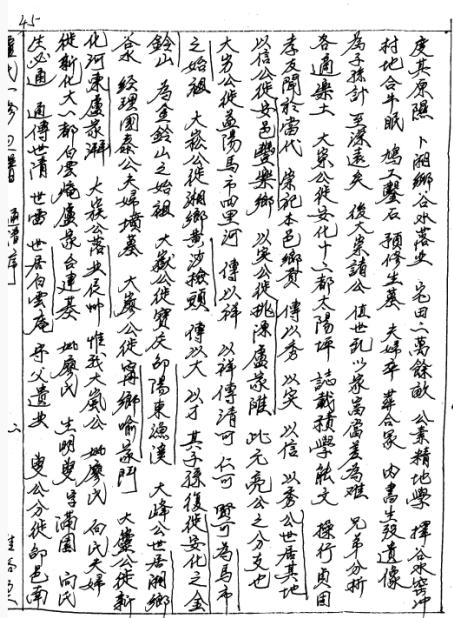 45
度其原隰 卜湘鄉谷水落业 宅田二萬餘畝 公素精地學 擇谷水窑冲
村地合牛眠 鳩工鑿石 預修生墓 夫婦卒 葬合冢 內書生殁遺像
為子孫計 至深遠矣 後大崇諸公 值世乱 以家嵩富甚為难 兄弟分析
各適樂土 大崇公徙安化十二都大陽坪 誌載積學能文 操行貞固
孝友聞於當代 崇祀本邑鄉賢 傳以秀 以实 以信 以秀公世居其地
以信公徙安邑豐樂鄉 以实公徙桃源盧家隴 此元亮公之分支也
大岩公徙益陽馬市四里河 傳以祥 以祥傳清可 仁可 賢可為馬市
之始祖 大嵩公徙湘鄉黄沙撿頭 傳以大 以才 其子孫復徙安化之金
鈴山 為金鈴山之始祖 大嶽公徙寶庆邵陽東 大峰公世居湘鄉
谷水 經理國泰公夫婦墳墓 大岑公徙甯鄉喻家鬥 大公徙新
化河東盧家 大公落业辰州 惟我大嵐公 妣廖氏 向氏夫婦
徙新化大八都白雲庵盧家台建基 妣廖氏 生明叟 字滿園 向氏
生必通 通傳世清 世雷 世居白雲庵 守父遺业 叟公分徙邵邑南
通譜序 二